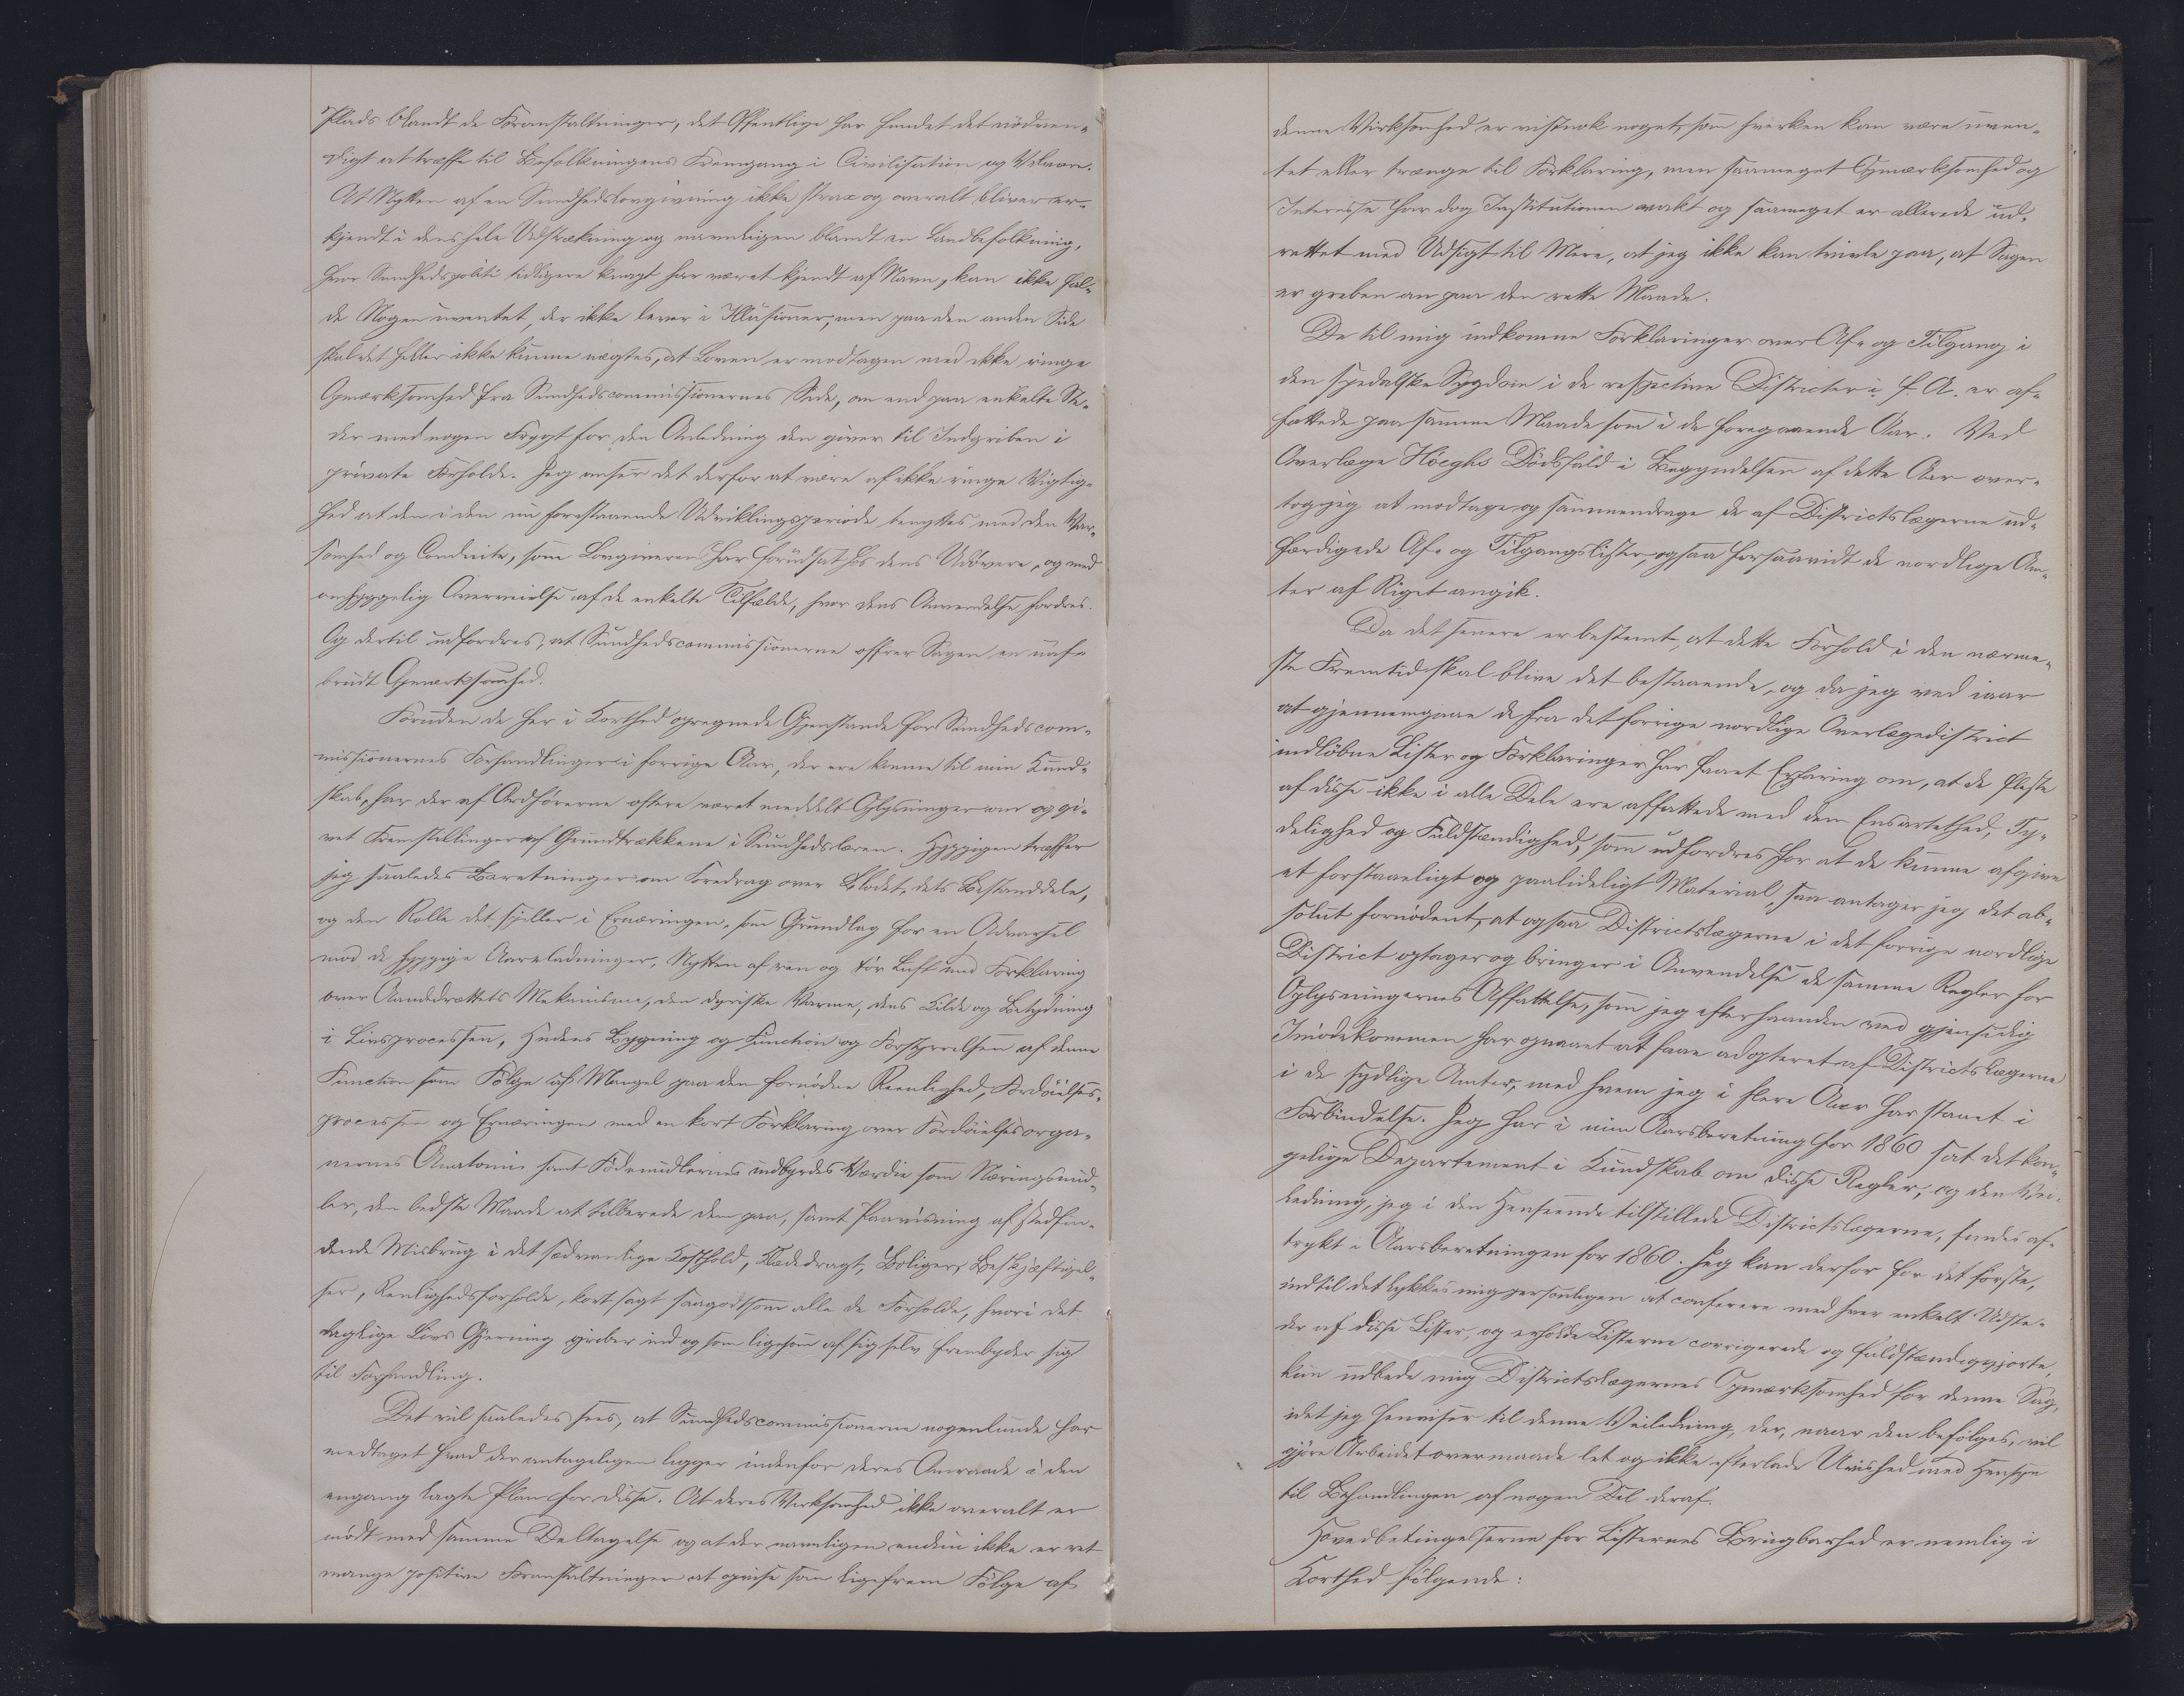 Plads blandt de Foranstaltninger, det Offentlige har fundet det nödven-
digt at træffe til Befolkningens Fremgang i Civilisation og Velvære.
At Nytten af en Sundhedslovgivning ikke strax og overalt bliver er-
kjendt i dens hele Udstrækning og navnligen blandt en Landbefolkning,
hvor Sundhedspoliti tidligere knapt har været kjendt af Navn, kan ikke fal-
de Nogen uventet, der ikke lever i Illusioner; men paa den anden Side
skal det heller ikke kunne nægtes, at Loven er modtagen med ikke ringe
Opmærksomhed fra Sundhedscommissionernes Side, om end paa enkelte Ste-
der med nogen Frygt for den Anledning den giver til Indgriben i
private Forholde. Jeg anser det derfor at være af ikke ringe Vigtig-
hed at den i den nu forestaaende Udviklingsperiode benyttes med den Var-
somhed og Conduite, som Lovgiveren har forudsat hos dens Udövere, og med
omhyggelig Overveielse af de enkelte Tilfælde, hvor dens Anvendelse fordres.
Og dertil udfordres, at Sundhedscommissionerne offrer Sagen en uaf-
brudt Opmærksomhed.
Foruden de her i Korthed opregnede Gjenstande for Sundhedscom-
missionernes Forhandlinger i forrige Aar, der ere komne til min Kund-
skab, har der af Ordförerne oftere været meddelt Oplysninger om og gi-
vet Fremstillinger af Grundtrækkene i Sundhedslæren. Hyppigen træffer
jeg saaledes Beretninger om Foredrag over Blodet, dets Bestanddele,
og den Rolle det spiller i Ernæringen, som Grundlag for en Advarsel
mod de hyppige Aareladninger, Nytten af ren og tör Luft med Forklaring
over Aandedrættets Mekanisme, den dyriske Varme, dens Kilde og Betydning
i Livsprocessen, Hudens Bygning og Function og Forstyrrelsen af denne
Function som Fölge af Mangel paa den fornödne Reenlighed, Fordöielses-
processen og Ernæringen med en kort Forklaring over Fordöielsesorga-
nernes Anatomie samt Födemidlernes indbyrdes Værdie som Næringsmid-
ler, den bedste Maade at tilberede dem paa, samt Paavisning af stedfin-
dende Misbrug i det sædvanlige Kosthold, Klædedragt, Boliger, Beskjæftigel-
ser, Renlighedsforholde, kort sagt saagodtsom alle de Forholde, hvori det
daglige Livs Gjerning griber ind og som ligesom af sig selv frembyder sig
til Forhandling.
Det vil saaledes sees, at Sundhedscommissionerne nogenlunde har
medtaget hvad der antageligen ligger indenfor deres Omraade i den
engang lagte Plan for disse. At deres Virksomhed ikke overalt er
mödt med samme Deltagelse og at der navnligen endnu ikke er ret
mange positive Foranstaltninger at opvise som ligefrem Fölge af
denne Virksomhed er vistnok noget, som hverken kan være uven-
tet eller trænge til Forklaring, men saameget Opmærksomhed og
Interesse har dog Institutionen vakt og saameget er allerede ud-
rettet med Udsigt til Mere, at jeg ikke kan tvivle paa, at Sagen
er greben an paa den rette Maade.
De til mig indkomne Forklaringer over Af- og Tilgang i
den spedalske Sygdom i de respective Districter i f. A. er af-
fattede paa samme Maade som i de foregaaende Aar. Ved
Overlæge Höeghs Dödsfald i Begyndelsen af dette Aar over-
tog jeg at modtage og sammendrage de af Districtslægerne ud-
færdigede Af- og Tilgangslister, ogsaa forsaavidt de nordlige Am-
ter af Riget angik.
Da det senere er bestemt, at dette Forhold i den nærme-
ste Fremtid skal blive det bestaaende, og da jeg ved iaar
at gjennemgaae de fra det forrige nordlige Overlægedistrict
indlöbne Lister og Forklaringer har faaet Erfaring om, at de fleste
af disse ikke i alle Dele ere affattede med den Ensartethed, Ty-
delighed og Fuldstændighed, som udfordres for at de kunne afgive
et forstaaeligt og paalideligt Material, saa antager jeg det ab-
solut fornödent, at ogsaa Districtslægerne i det forrige nordlige
District optager og bringer i Anvendelse de samme Regler for
Oplysningernes Affattelse, som jeg efterhaanden ved gjensidig
Imödekommen har opnaaet at faae adopteret af Districtslægerne
i de sydlige Amter, med hvem jeg i flere Aar har staaet i
Forbindelse. Jeg har i min Aarsberetning for 1860 sat det kon-
gelige Departement i Kundskab om disse Regler, og den Vei-
ledning, jeg i den Henseende tilstillede Districtslægerne, findes af-
trykt i Aarsberetningen for 1860. Jeg kan derfor for det förste,
indtil det lykkes mig personligen at conferere med hver enkelt Udste-
der af disse Lister, og erholde Listerne corrigerede og fuldstændiggjorte,
kun udbede mig Districtslægernes Opmærksomhed for denne Sag,
idet jeg henviser til denne Veiledning, der, naar den befölges, vil
gjöre Arbeidet overmaade let og ikke efterlade Uvished med Hensyn
til Behandlingen af nogen Del deraf.
Hovedbetingelserne for Listernes Brugbarhed er nemlig i
Korthed fölgende: